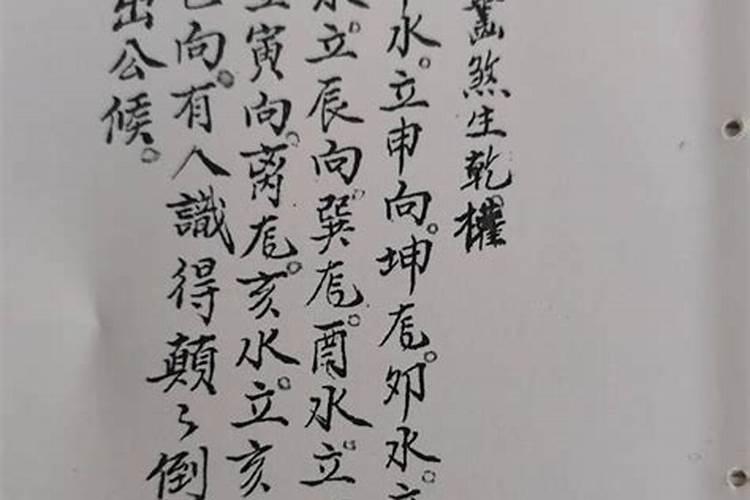 煞生乾權
水。立申向。坤尨。卯水。立
水。立辰向。巽尨。酉水。立
立寅向。离尨。亥水。立亥
向。有人識得顛々倒
出公候。